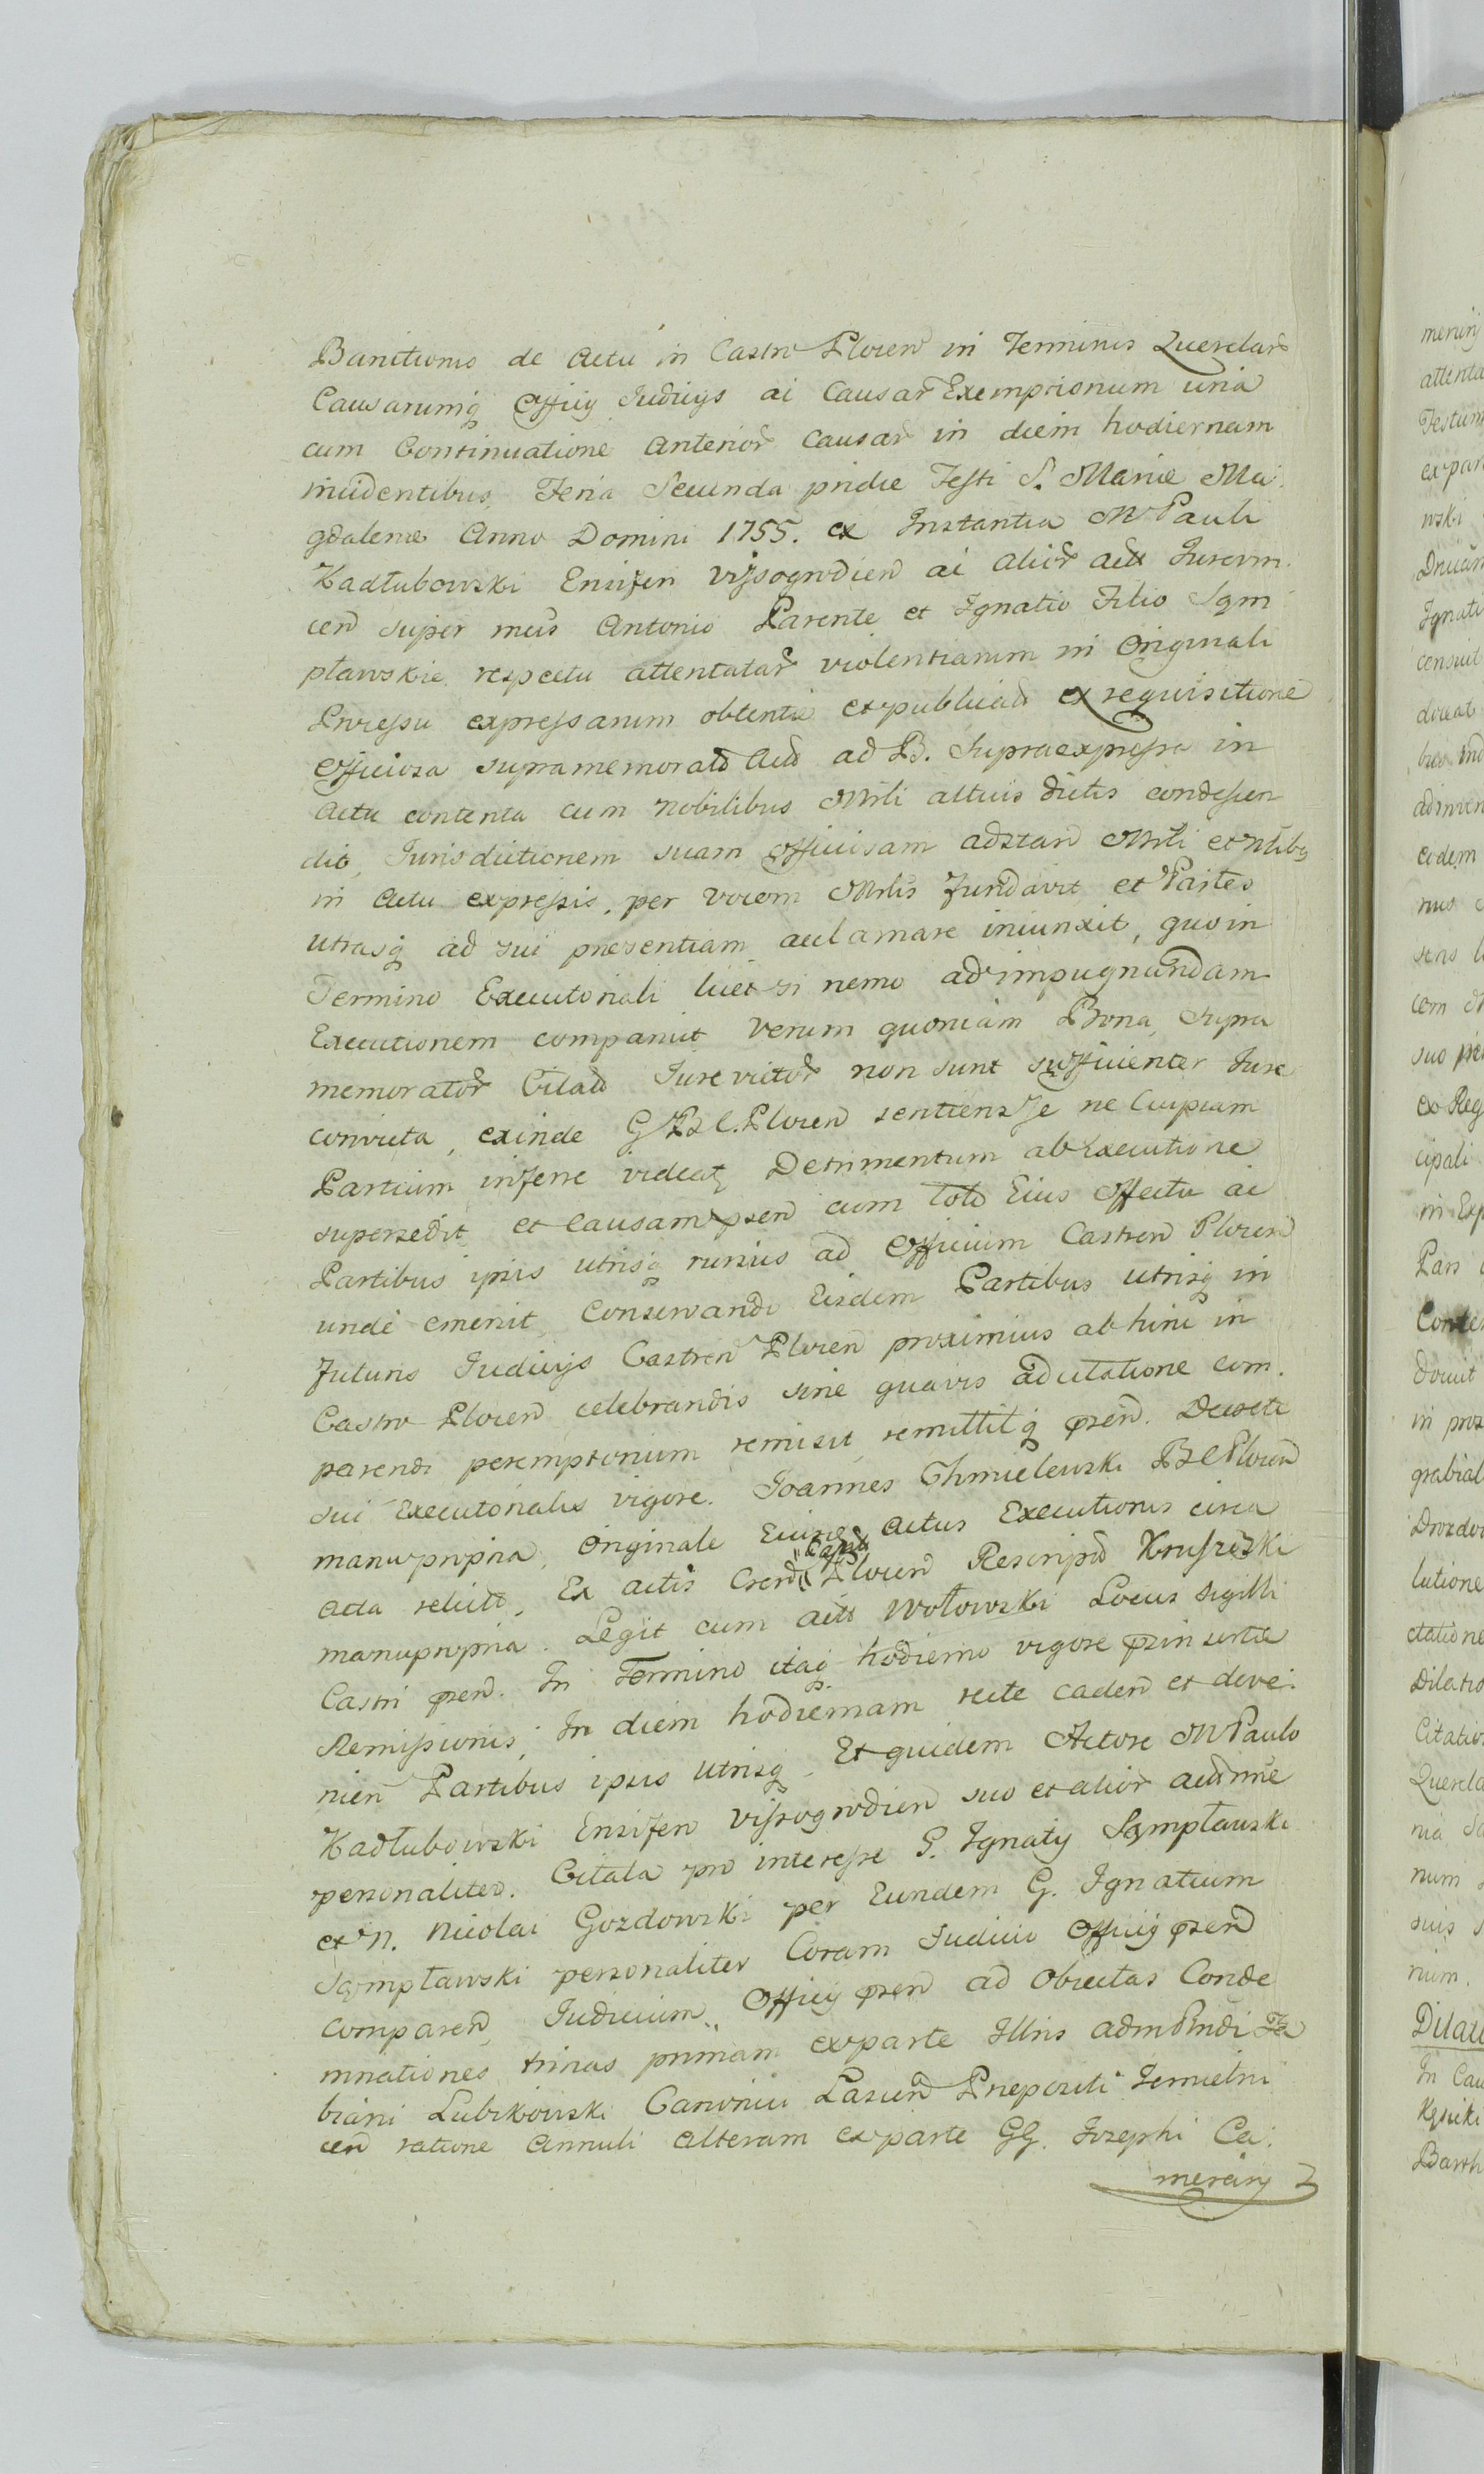 Banitionis de Actu in Castro Plocen in Terminis Querelar
Causarumq Officij Judicijs ac Causar Exemptionum una
cum Continuatione Anterior Causar in diem hodiernam
incidentibus, Feria Secunda pridie Festi S. Mariæ Ma.
gdalenæ Anno Domini 1755. ex Instantia M Pauli
Kadłubowski Ensiferi Vissogrodien ac alior Act Jurevin.
cen super meis Antonio Parente et Ignatio Filio Sąm
pławskie respectu attentatar violentiarum in Originali
Processu expressarum obtentæ et publicata ex requisitione
Officiosa supramemorat Act ad B. Supraexpressa in
Actu contenta cum Nobilibus Mrli altius dictis condescen
dit, Jurisdictionem suam Officiosam adstan Mrli et Nlibq
in Actu expressis, per vocem Mrlis fundavit et Partes
utrasq ad sui presentiam acclamare iniunxit, quo in
Termino Executoriali licet si nemo ad impugnandam
Executionem comparuit verum quoniam Bona Supra
memorator Citat Jurevictor non sunt sufficienter Jure
convicta, exinde G B C. Plocen sentiens se ne Cuipiam
Partium inferre videatq Detrimentum ab Executione
supersedit et causam psen cum toto Eius Effectu ac
Partibus ipsis utrisq rursus ad Officium Castren Plocen
unde emerit, Conservandi Eisdem Partibus utrisq in
futuris Judicijs Castren Plocen proximius ab hinc in
Castro Plocen celebrandis sine quavis adcitatione com.
parendi peremptorium remisit remittitq psen. Decreti
sui Executorialis vigore. Joannes Chmielewski B C Plocen
manupropria, Originale Eiusq Actus Executionis circa
acta relict, Ex actis Cren "Capsl" Plocen Rescript Kruszeski
manupropria. Legit cum actt Wołowski Locus Sigilli
Castri psen. In Termino itaq hodierno vigore psinsertæ
Remissionis, In diem hodiernam recte caden et deve.
nien Partibus ipsis utrisq. Et quidem Actore M Paulo
Kadłubowski Ensifero Vissogrodien suo et alior act nne
personaliter. Citata pro interesse G. Ignatij Sąmpławski
et N. Nicolai Gozdowski per Eundem G. Ignatium
Sąmpławski personaliter Coram Judicio Officij psen
comparen, Judicium Officij psen ad Obiectas Conde
mnationes trinas primam ex parte Illris adm Rndi Fa
biani Lubikowski Canonici Lascen Præpositi Jemielni
cen ratione Annuli Alteram ex parte GG. Josephi Ca.
merarij

merarij
attenta
Testum
ex par
wski
Ignati
censuit
doceat
adinven
eodem
nus
cem
suo
ex Reg
cipali
in Exp
Pars
docuit
in
lutione
ctatione
Dilatio
Citatio
Querela
nia
num
suis
nium.
Dilati
In Cau
Barth